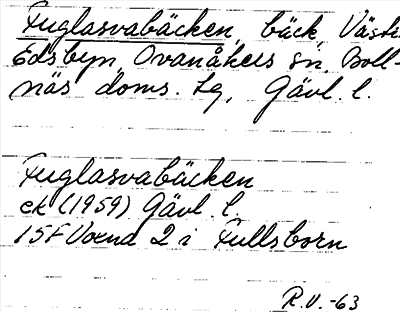 Fuglasvabäcken, bäck, Västr
Edsbyn, Ovanåkers sn, Boll-
näs doms. lg, Gävl. l.
Fuglasvabäcken
ek (1959) Gävl. l.
15F Voxna 2 i Fullsborn
R.V. -63